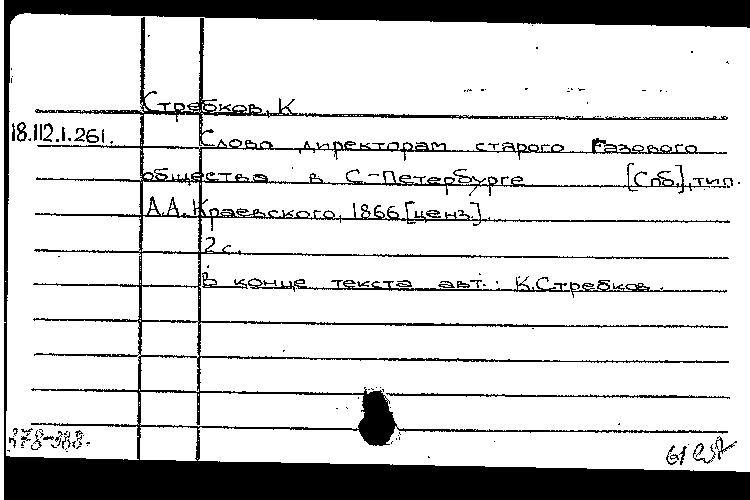 Стребков, К
18.112.1.261. Слово директорам старого Газового
общества в С-Петербурге [Спб.], тип.
А.А. Краевского, 1866 [ценз].
2 с.
В конце текста авт.: К.Стребков.
378-388.